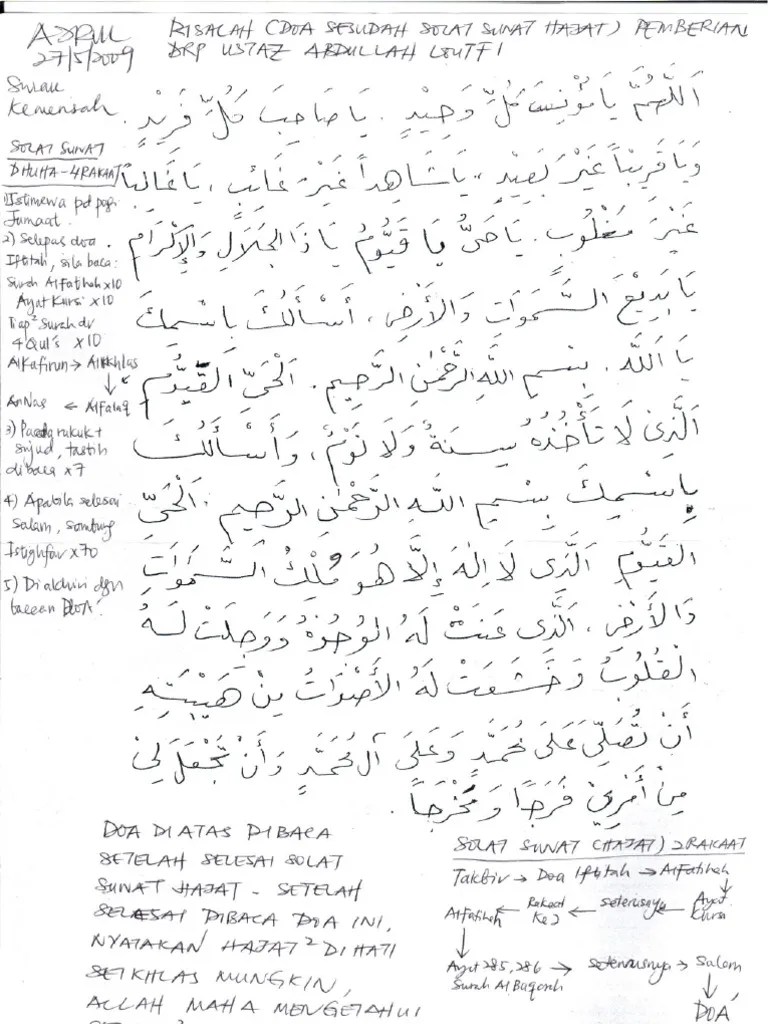 AZRUL
27/5/2009
RISALAH (DOA SESUDAH SOLAT SUNAT HAJAT) PEMBERIAN
DRP USTAZ ABDULLAH LOUTFI
Surau
Kemensah
SOLAT SUNAT
DHUHA - 4 RAKAAT
1) Istimewa pd pagi
Jumaat.
2) Selepas doa
Iftitah, sila baca:
Surah AlFatihah x10
Ayat Kursi x10
Tiap² Surah dr
4 Qul's x10
AlKafirun → AlIkhlas
↓
AnNas ← AlFalaq
3) Pada rukuk +
sujud, tasbih
dibaca x7
4) Apabila selesai
salam, sambung
Istighfar x70
5) Diakhiri dgn
bacaan DOA.
اَللّٰهُمَّ يَا مُؤْنِسَ كُلِّ وَحِيْدٍ. يَا صَاحِبَ كُلِّ فَرِيْدٍ.
وَيَا قَرِيْبًا غَيْرَ بَعِيْدٍ، يَا شَاهِدًا غَيْرَ غَائِبٍ، يَا غَالِبًا
غَيْرَ مَغْلُوْبٍ. يَا حَيُّ يَا قَيُّوْمُ يَا ذَا الْجَلَالِ وَالْإِكْرَامِ.
يَا بَدِيْعَ السَّمٰوَاتِ وَالْأَرْضِ، أَسْأَلُكَ بِاسْمِكَ
يَا اَللّٰهُ. بِسْمِ اللّٰهِ الرَّحْمٰنِ الرَّحِيْمِ. اَلْحَيُّ الْقَيُّوْمُ
الَّذِى لَا تَأْخُذُهُ سِنَةٌ وَلَا نَوْمٌ، وَأَسْأَلُكَ
بِاسْمِكَ بِسْمِ اللّٰهِ الرَّحْمٰنِ الرَّحِيْمِ. اَلْحَيِّ
الْقَيُّوْمِ الَّذِى لَا إِلٰهَ إِلَّا هُوَ مُلْكُ السَّمٰوَاتِ
وَالْأَرْضِ، الَّذِى عَنَتْ لَهُ الْوُجُوْهُ وَوَجِلَتْ لَهُ
الْقُلُوْبُ وَخَشَعَتْ لَهُ الْأَصْوَاتُ مِنْ هَيْبَتِهِ
أَنْ تُصَلِّيَ عَلَى مُحَمَّدٍ وَعَلَى آلِ مُحَمَّدٍ وَأَنْ تَجْعَلَ لِيْ
مِنْ أَمْرِيْ فَرَجًا وَمَخْرَجًا.
DOA DIATAS DIBACA
SETELAH SELESAI SOLAT
SUNAT HAJAT - SETELAH
SELESAI DIBACA DOA INI,
NYATAKAN HAJAT² DIHATI
SEIKHLAS MUNGKIN,
ALLAH MAHA MENGETAHUI
SOLAT SUNAT (HAJAT) 2 RAKAAT
Takbir → Doa Iftitah → AlFatihah
↓
AlFatihah ← Rakaat Ke 2 ← seterusnya ← Ayat Kursi
↓
Ayat 285, 286 Surah Al Baqarah → seterusnya → Salam
↓
DOA